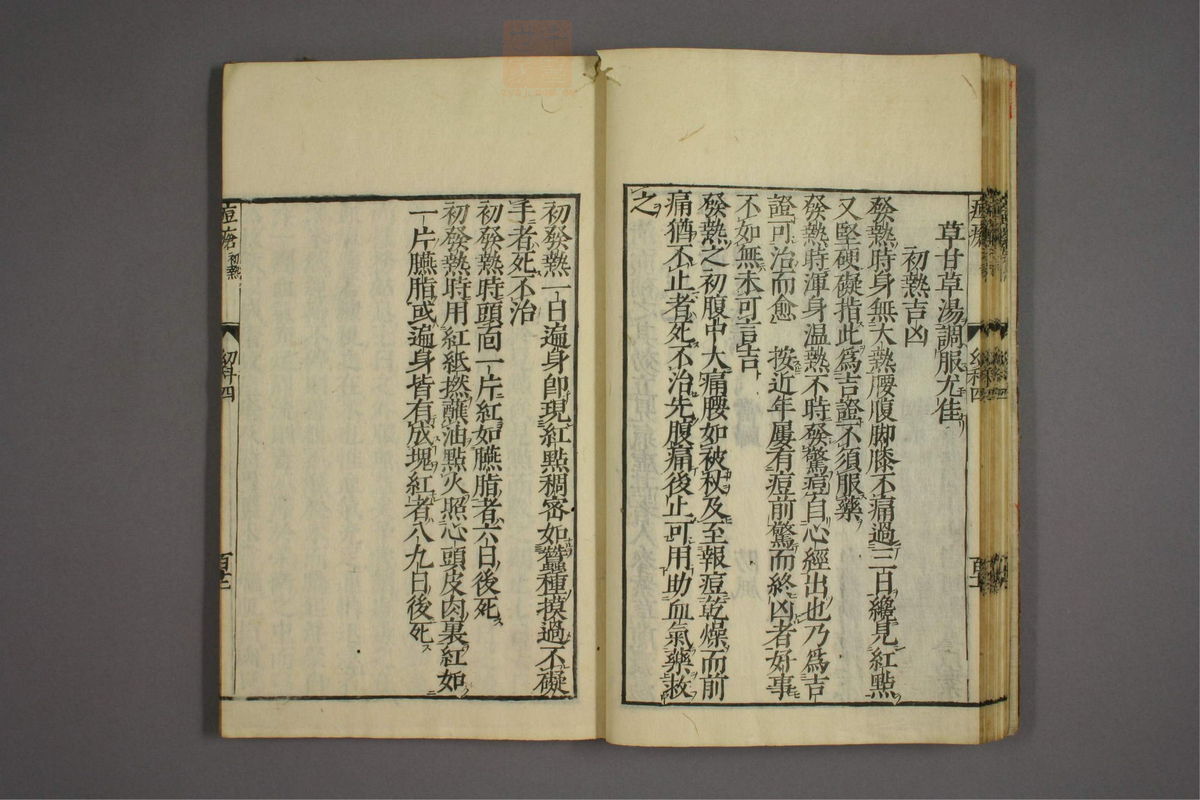 草甘草湯調服尤佳
初熱吉凶
發熱時身無大熱腰腹脚膝不痛過三日纔見紅㸃
又堅硬礙指此爲吉證不須服藥
發熱時渾身温熱不時發驚痘自心經出也乃爲吉
證可治而愈　按近年屢有痘前驚而終凶者好事
不如無未可言吉
發熱之初腹中大痛腰如被杖及至報痘乾燥而前
痛猶不止者死不治先腹痛後止可用助血氣藥救
之
初發熱一日遍身卽現紅點稠密如蠶種摸過不礙
手者死不治
初發熱時頭面一片紅如臙脂者六日後死
初發熱時用紅紙撚蘸油點火照心頭皮肉裏紅如
一片臙脂或遍身皆有成塊紅者八九日後死
痘瘡 初熱
幼科四
百十二